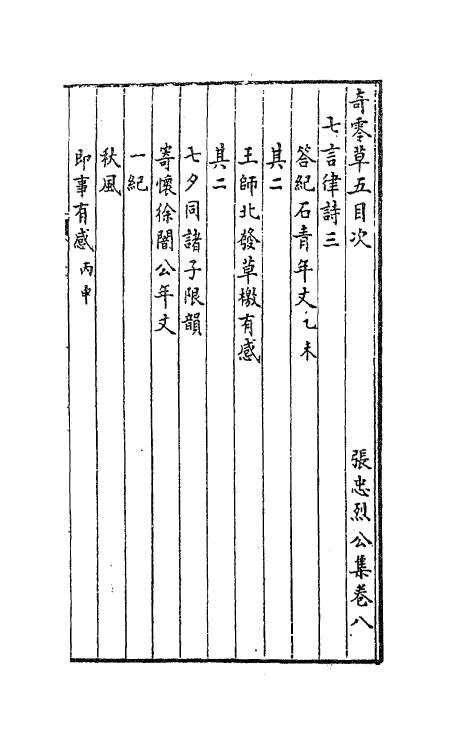 奇零草五目次 張忠烈公集卷八
七言律詩三
答紀石青年丈乙未
其二
王師北發草檄有感
其二
七夕同諸子限韻
寄懷徐闇公年丈
一紀
秋風
即事有感丙申